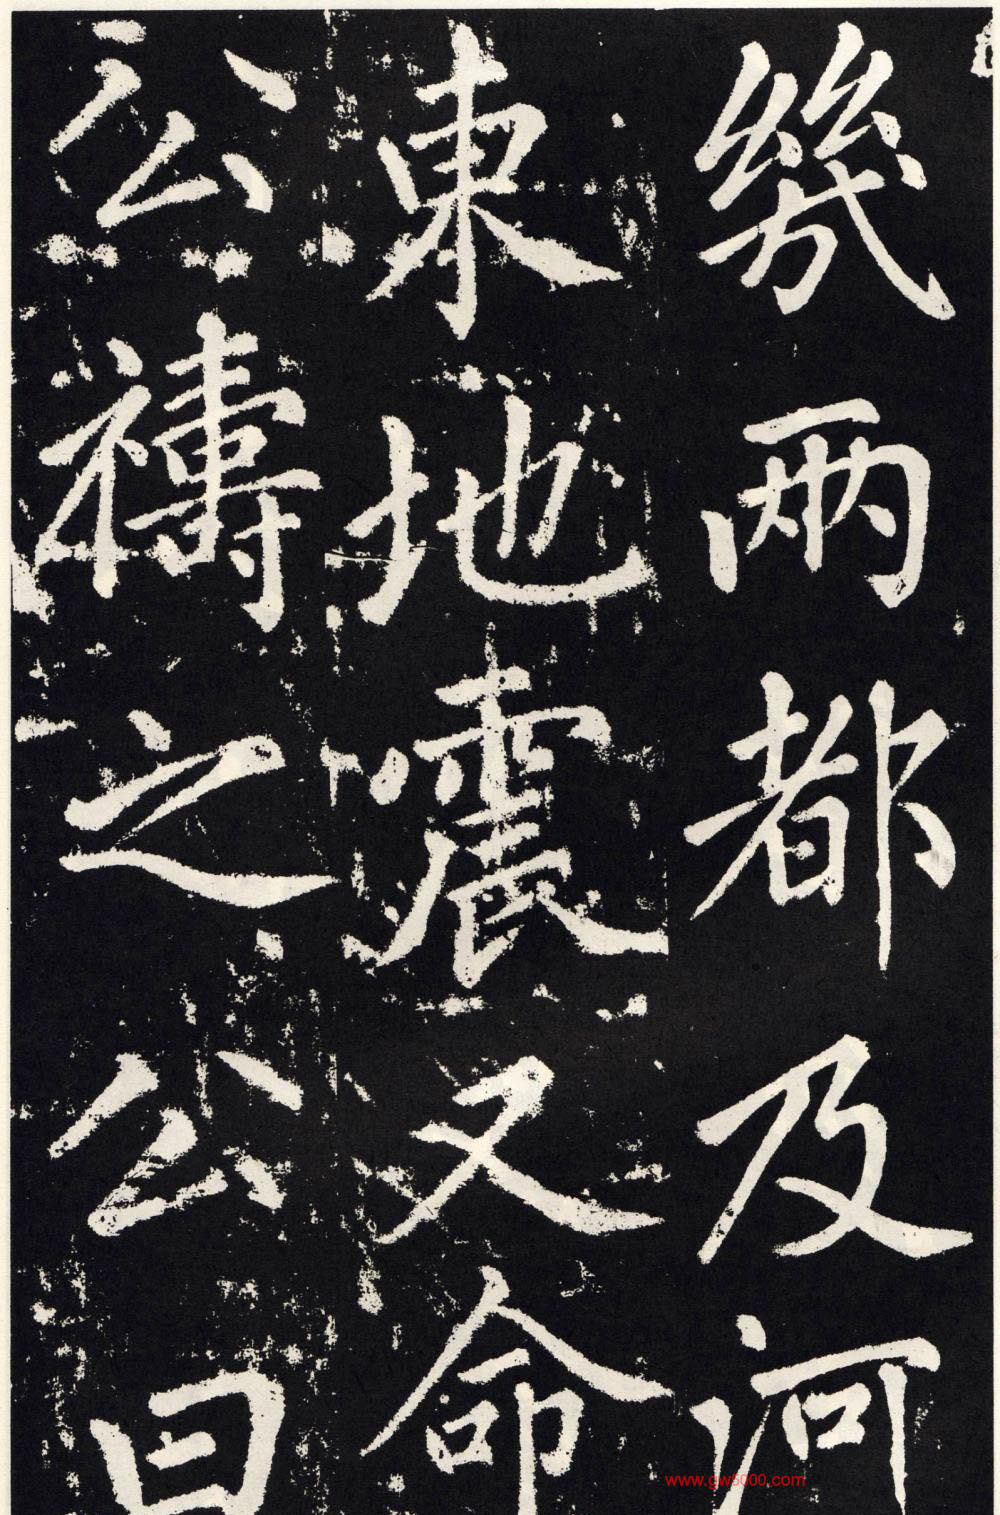 幾兩都及河
東地震又命
公禱之公曰
www.gw5000.com